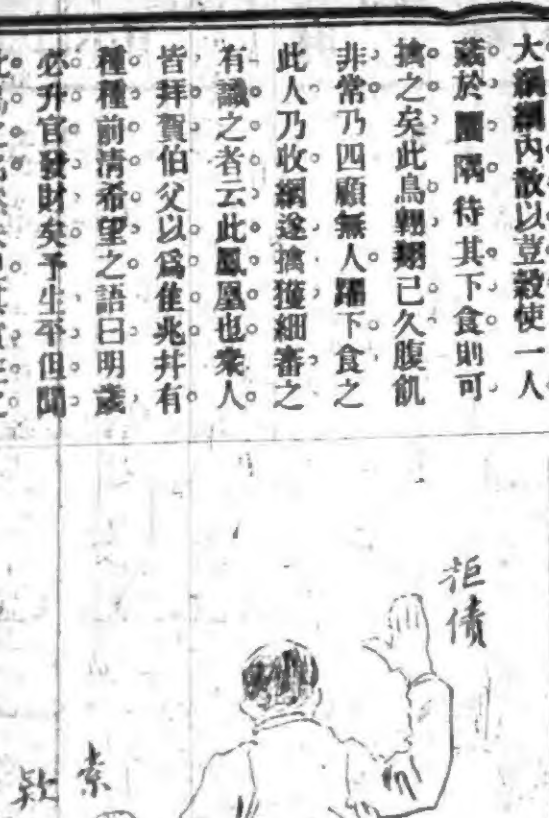 大綱網內散以荳穀使一人
藏於園隅待其下食則可
擒之矣此鳥翱翔已久腹飢
非常乃四顧無人躍下食之
此人乃收綱遂擒獲細審之
有識之者云此鳳凰也衆人
皆拜賀伯父以爲佳兆幷有
種種前清希望之語曰明歲
必升官發財矣予生平但聞
拒債
索
欵